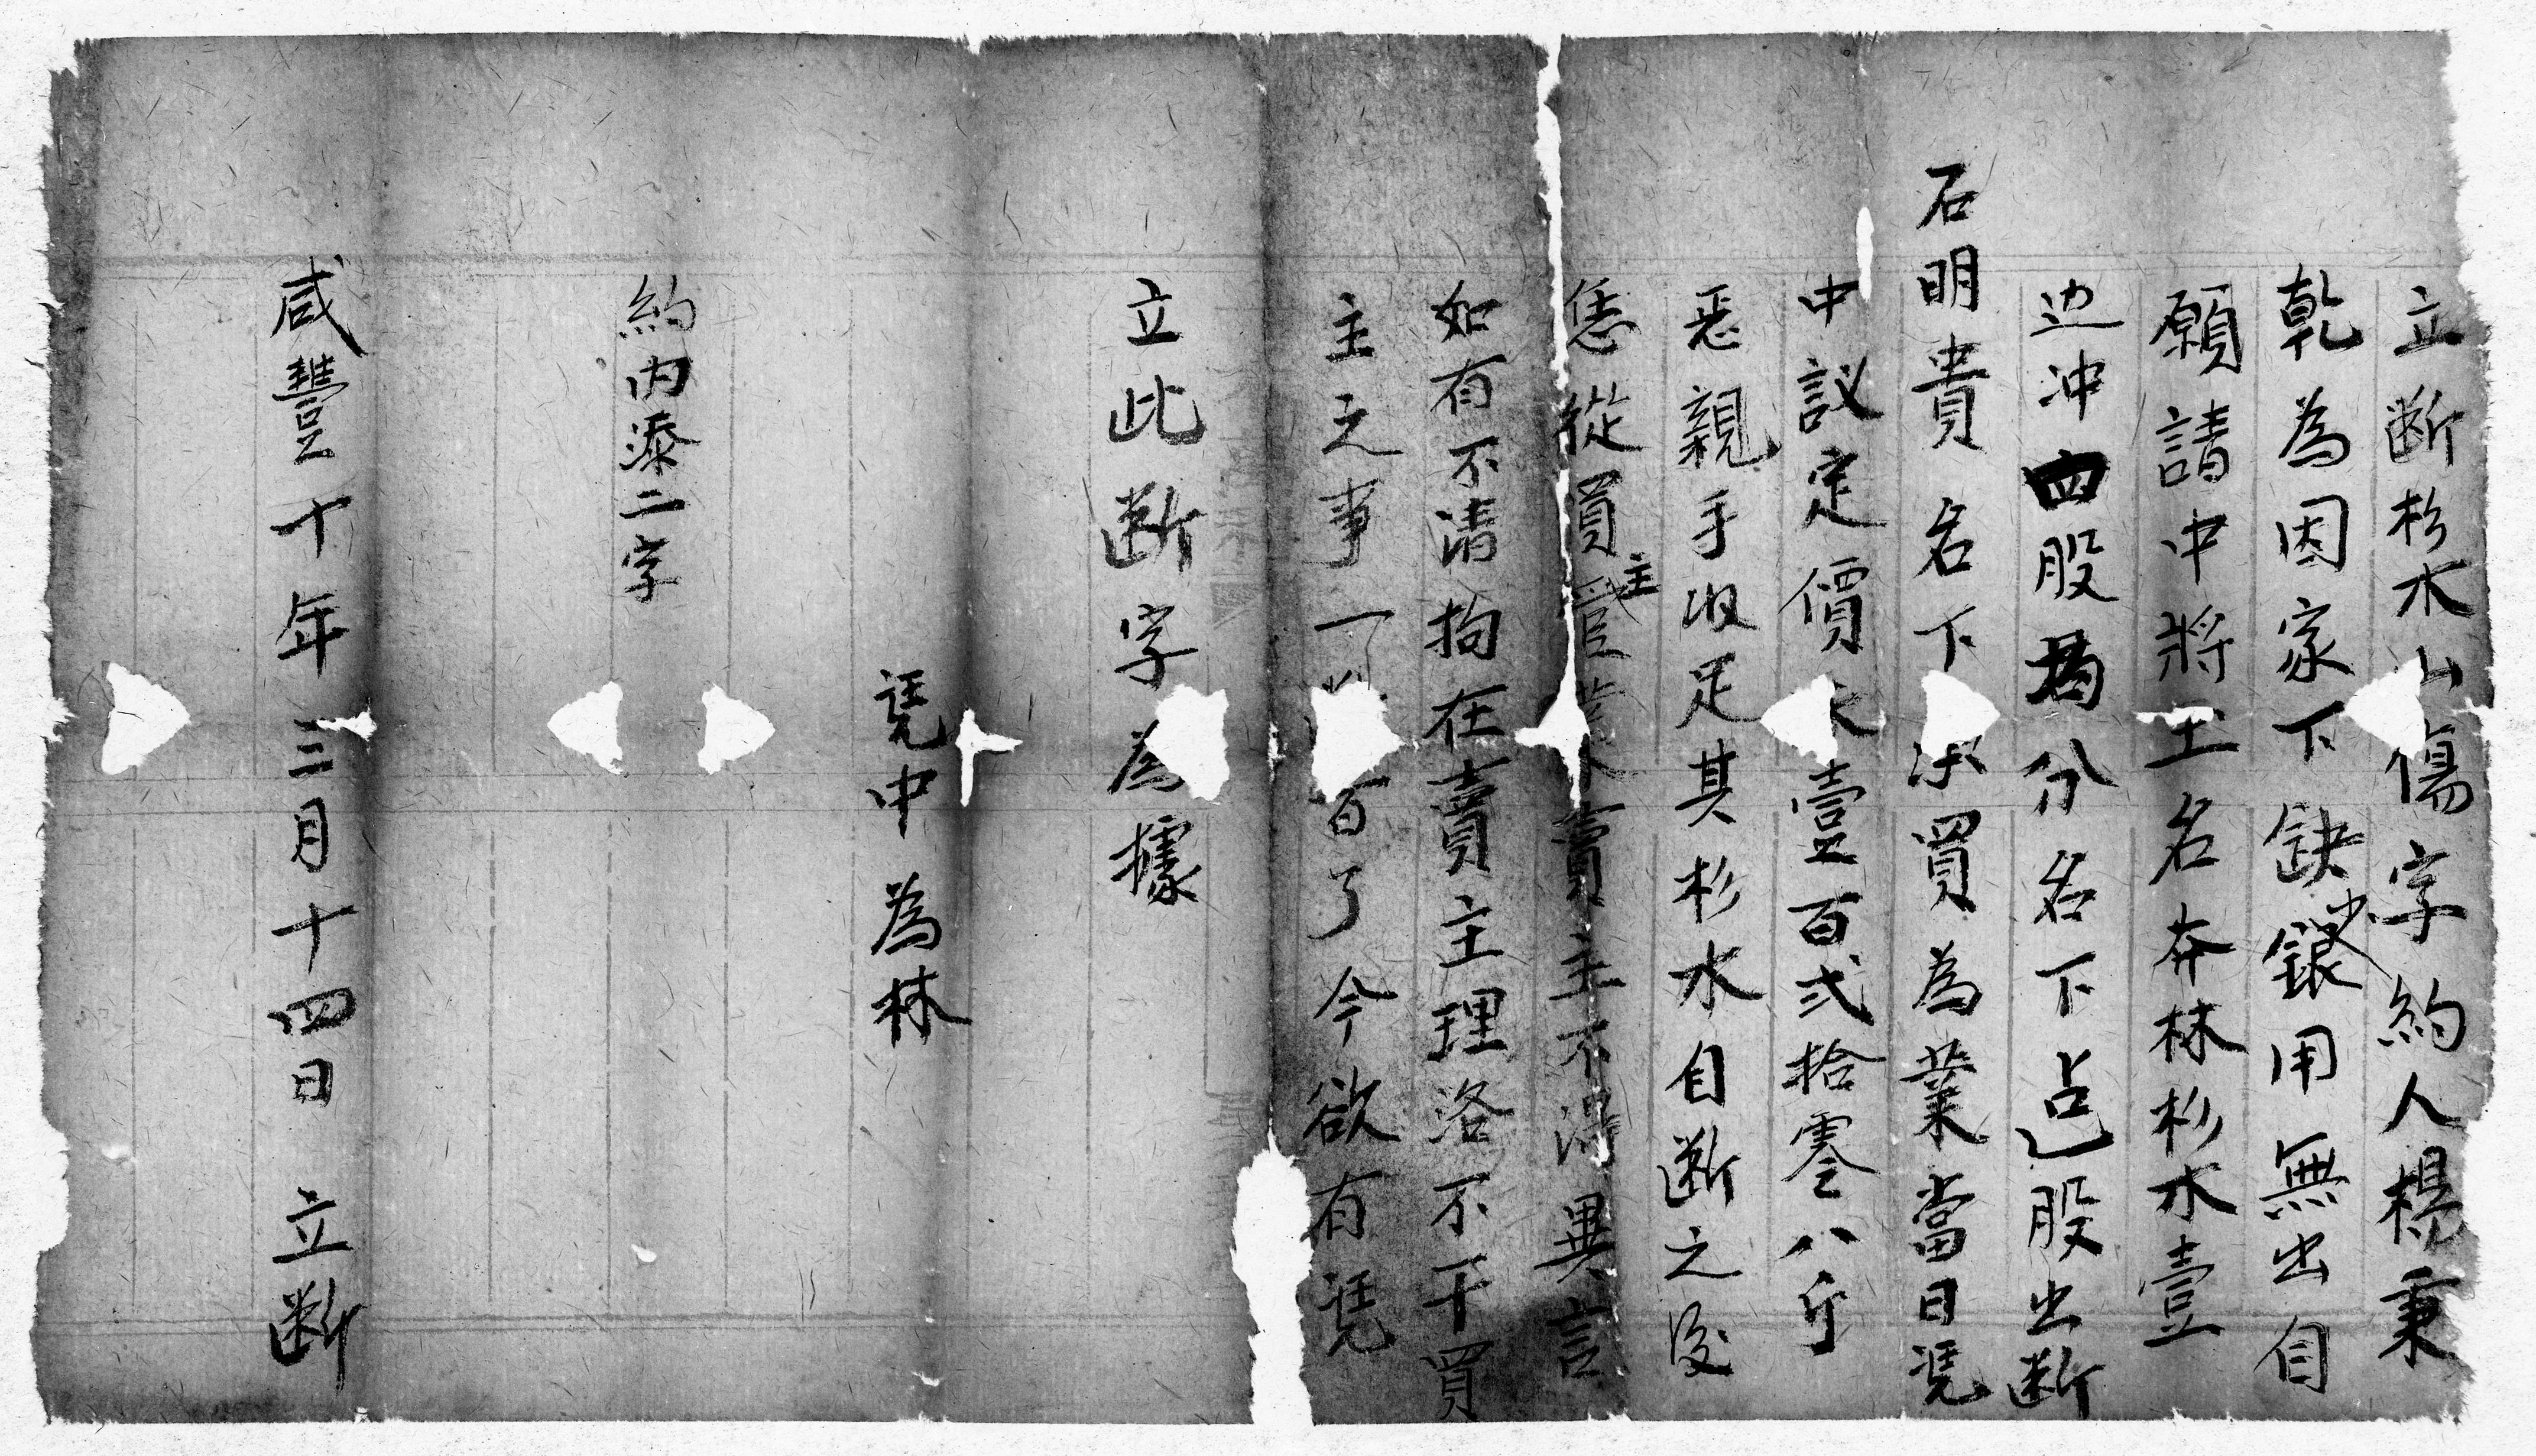 立断杉木山傷字約人楊秉
乾為因家下缺少銀用無出自
願請中將土名奔林杉木壹
边冲四股為分名下占乙股出断
石明貴名下承買為業當日凭
中議定價 壹百弍拾零八斤
恶親手收足其杉木自断之後
恁從買主管業賣主不得異言
如有不清拘在賣主理洛不干買
主之事一 百了今欲有凭
立此断字為據
凭中為林
約内添二字
咸豐十年三月十四日立断